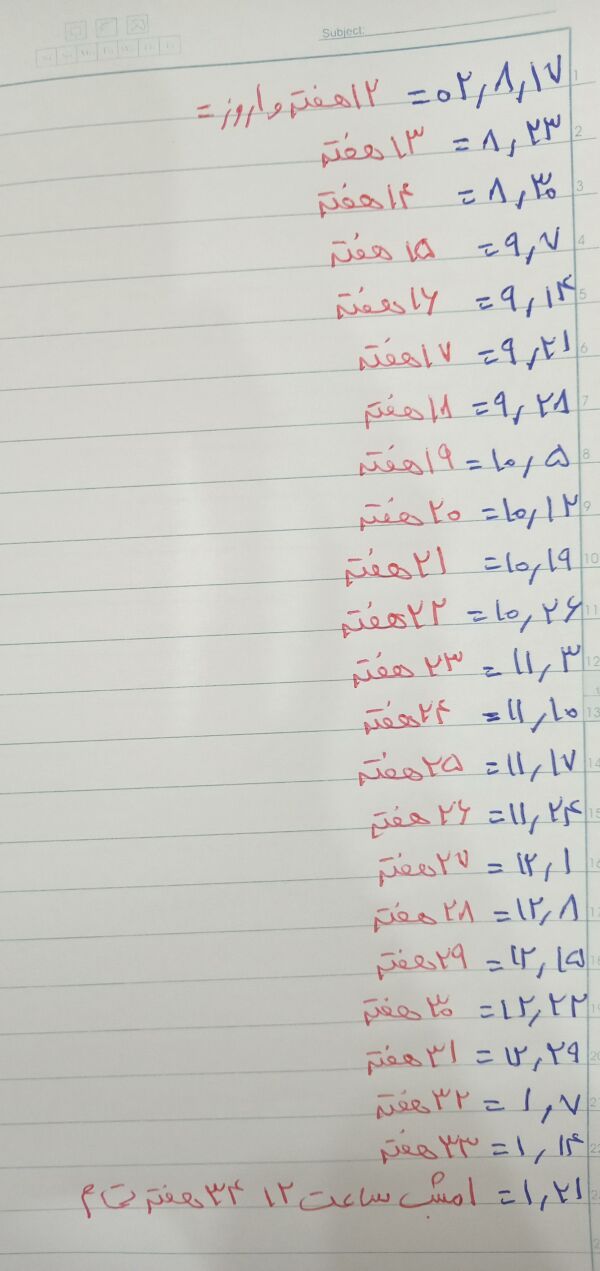 Subject:
۰۲,۸,۱۷= ۱۲هفته و۱روز =
۸,۲۳ = ۱۳هفته
۸,۳۰ = ۱۴هفته
۹,۷ = ۱۵ هفته
۹,۱۴ = ۱۶هفته
۹,۲۱ = ۱۷هفته
۹,۲۸ = ۱۸هفته
۱۰,۵ = ۱۹هفته
۱۰,۱۲ = ۲۰هفته
۱۰,۱۹ = ۲۱هفته
۱۰,۲۶ = ۲۲هفته
۱۱,۳ = ۲۳هفته
۱۱,۱۰ = ۲۴هفته
۱۱,۱۷ = ۲۵هفته
۱۱,۲۴ = ۲۶هفته
۱۲,۱ = ۲۷هفته
۱۲,۸ = ۲۸هفته
۱۲,۱۵ = ۲۹هفته
۱۲,۲۲ = ۳۰هفته
۱۲,۲۹ = ۳۱هفته
۱,۷ = ۳۲هفته
۱,۱۴ = ۳۳هفته
۱,۲۱ = امشب ساعت ۱۲ ۳۴هفته تمام